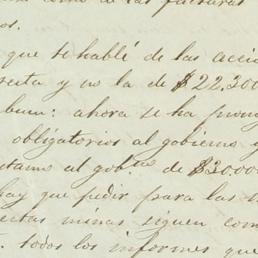 de las facturas
os.
que te hablé de las accio
recta y no la de $22.300
bum: ahora se ha prom
obligatorios al gobierno y
tamo al gob.no de $30000
hay que pedir para las m
ectas minas siguen com
. todos los informes que